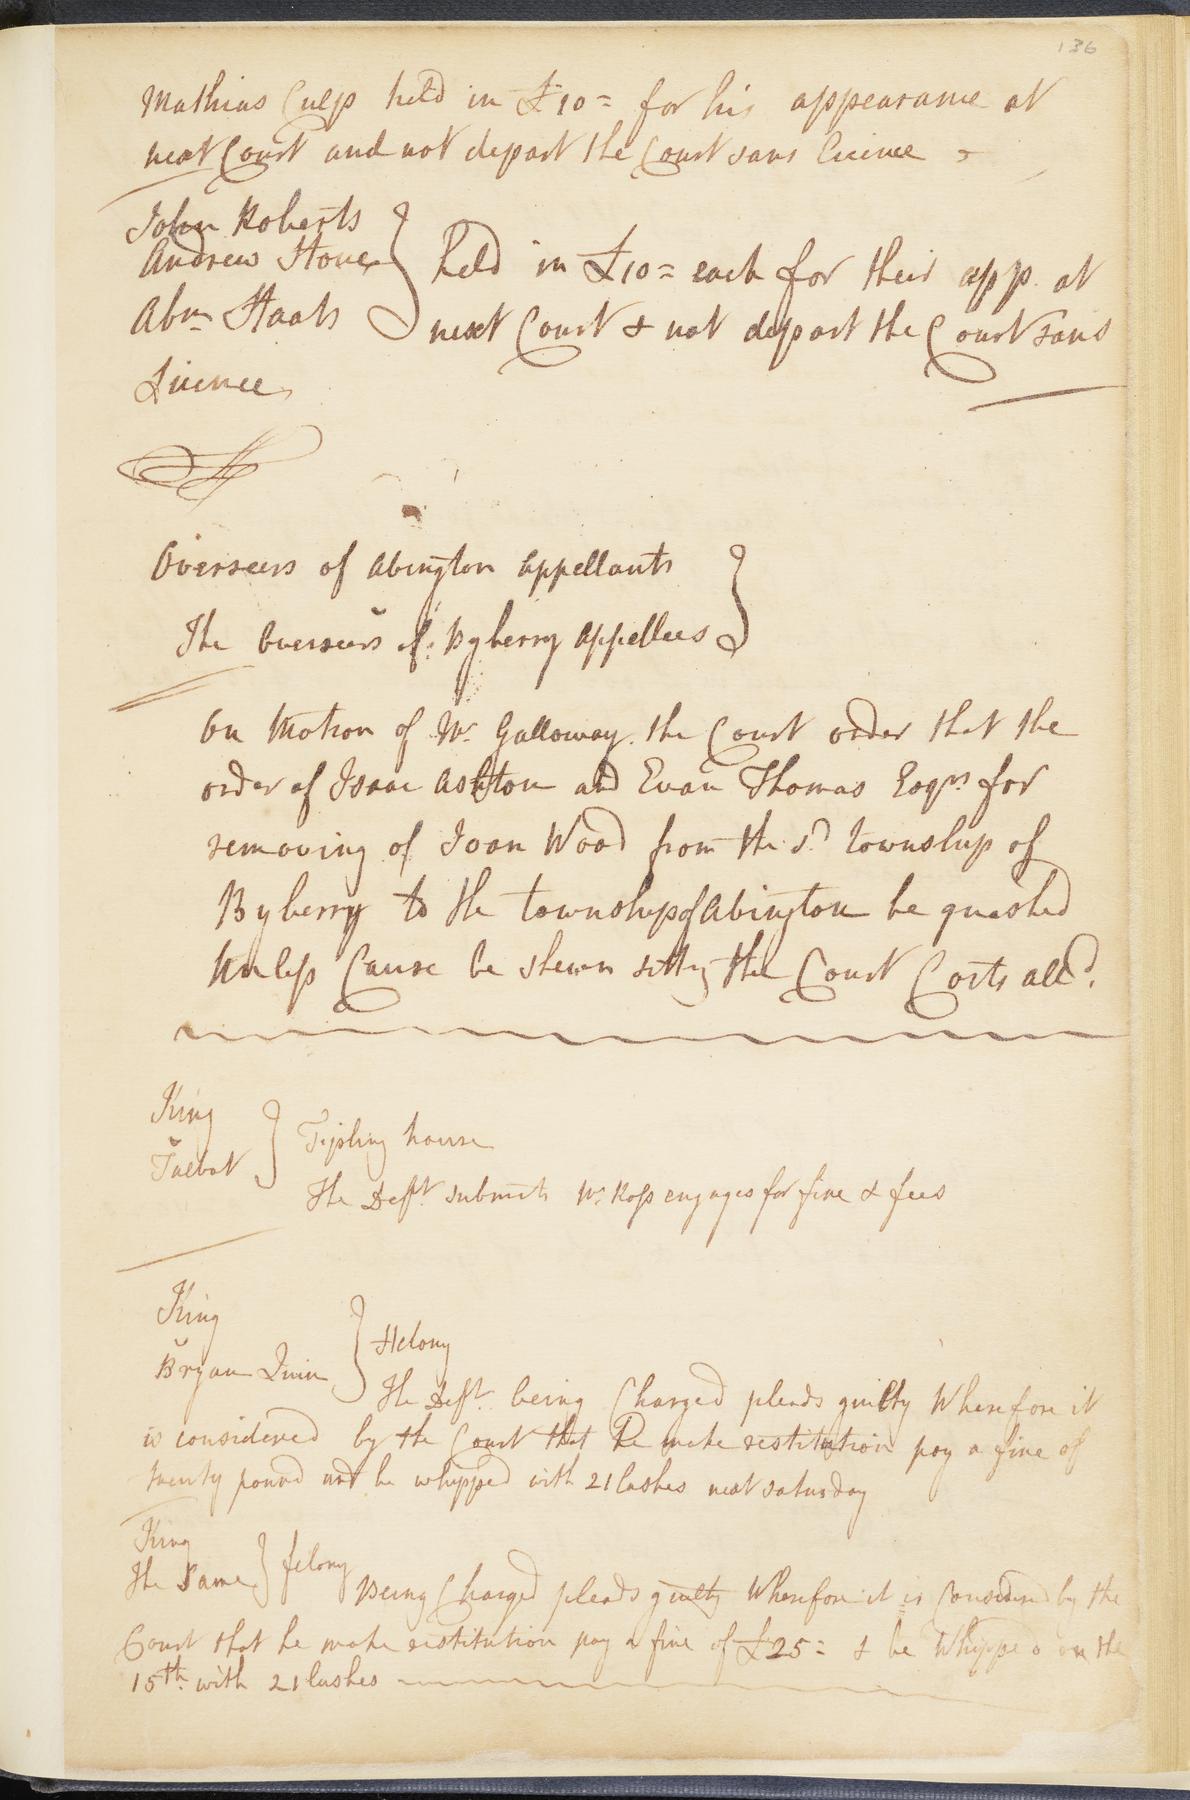 136
Mathias Culp held in £10= for his appearance at
next Court and not depart the Court sans licence
John Roberts
Andrew Stone
Abm Staats
held in £10= each for their app. at
next Court & not depart the Court sans
Licence
Overseers of Abington appellants
v
The Overseers of Byberry appellees
On Motion of Mr Galloway the Court order that the
order of Isaac Ashton and Evan Thomas Esqrs for
removing of Joan Wood from the sd township of
Byberry to the township of Abington be quashed
Unless Cause be shewn sitting the Court Costs alld.
King
v
Talbot
Tipling house
The Deft submits Mr Ross engages for fine & fees
King
v
Bryan Quin
Felony
The Deft being Charged pleads guilty Wherefore it
is considered by the Court that he make restitution pay a fine of
twenty pound and be whipped with 21 lashes next saturday
King
The Same
felony
Being Charged pleads guilty Wherefore it is Considered by the
Court that he make restitution pay a fine of £25= & be Whipped on the
15th with 21 lashes